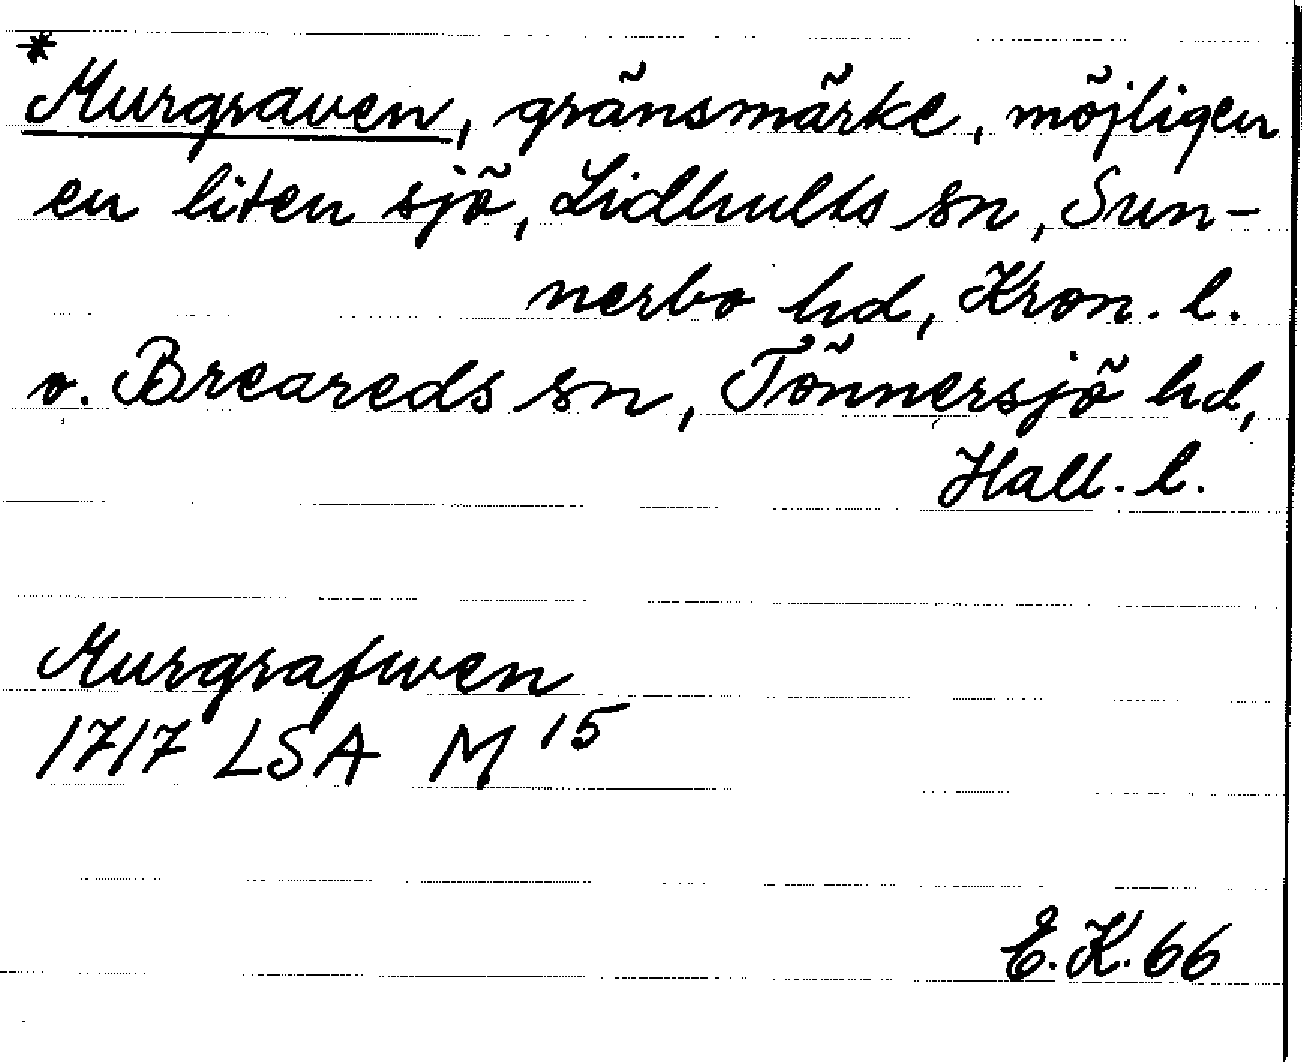 *
Murgraven, gränsmärke, möjligen
en liten sjö, Lidhults sn, Sun-
nerbo hd, Kron. l.
o. Breareds sn, Tönnersjö hd,
Hall. l.
Murgrafwen
1717 LSA M 15
E.K. 66